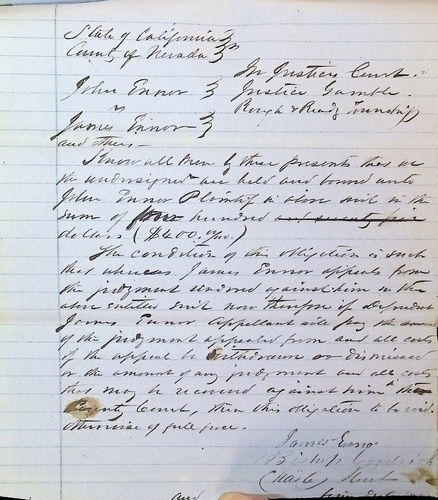 State of California }
County of Nevada } ss
In Justices Court.
John Ennor } Justice Gamble
vs } Rough & Ready Township
James Ennor }
and others
Know all Men by these presents that we
the undersigned are held and bound unto
John Ennor Plentif in above suit in the
sum of four hundred and seventy five
dollars ($400.
The condition of this obligation is such
that whereas James Ennor appeals from
the judgment rendered against him in the
above entitled suit now therefore if defendant
James Ennor Appellant will pay the amount
of the judgment appealed from and all costs
if the appeal be withdrawn or dismissed
or the amount of any judgment and all costs
that may be recovered against him in the
County Court, then this obligation to be void.
otherwise of full force.
James Ennor
Charles
and